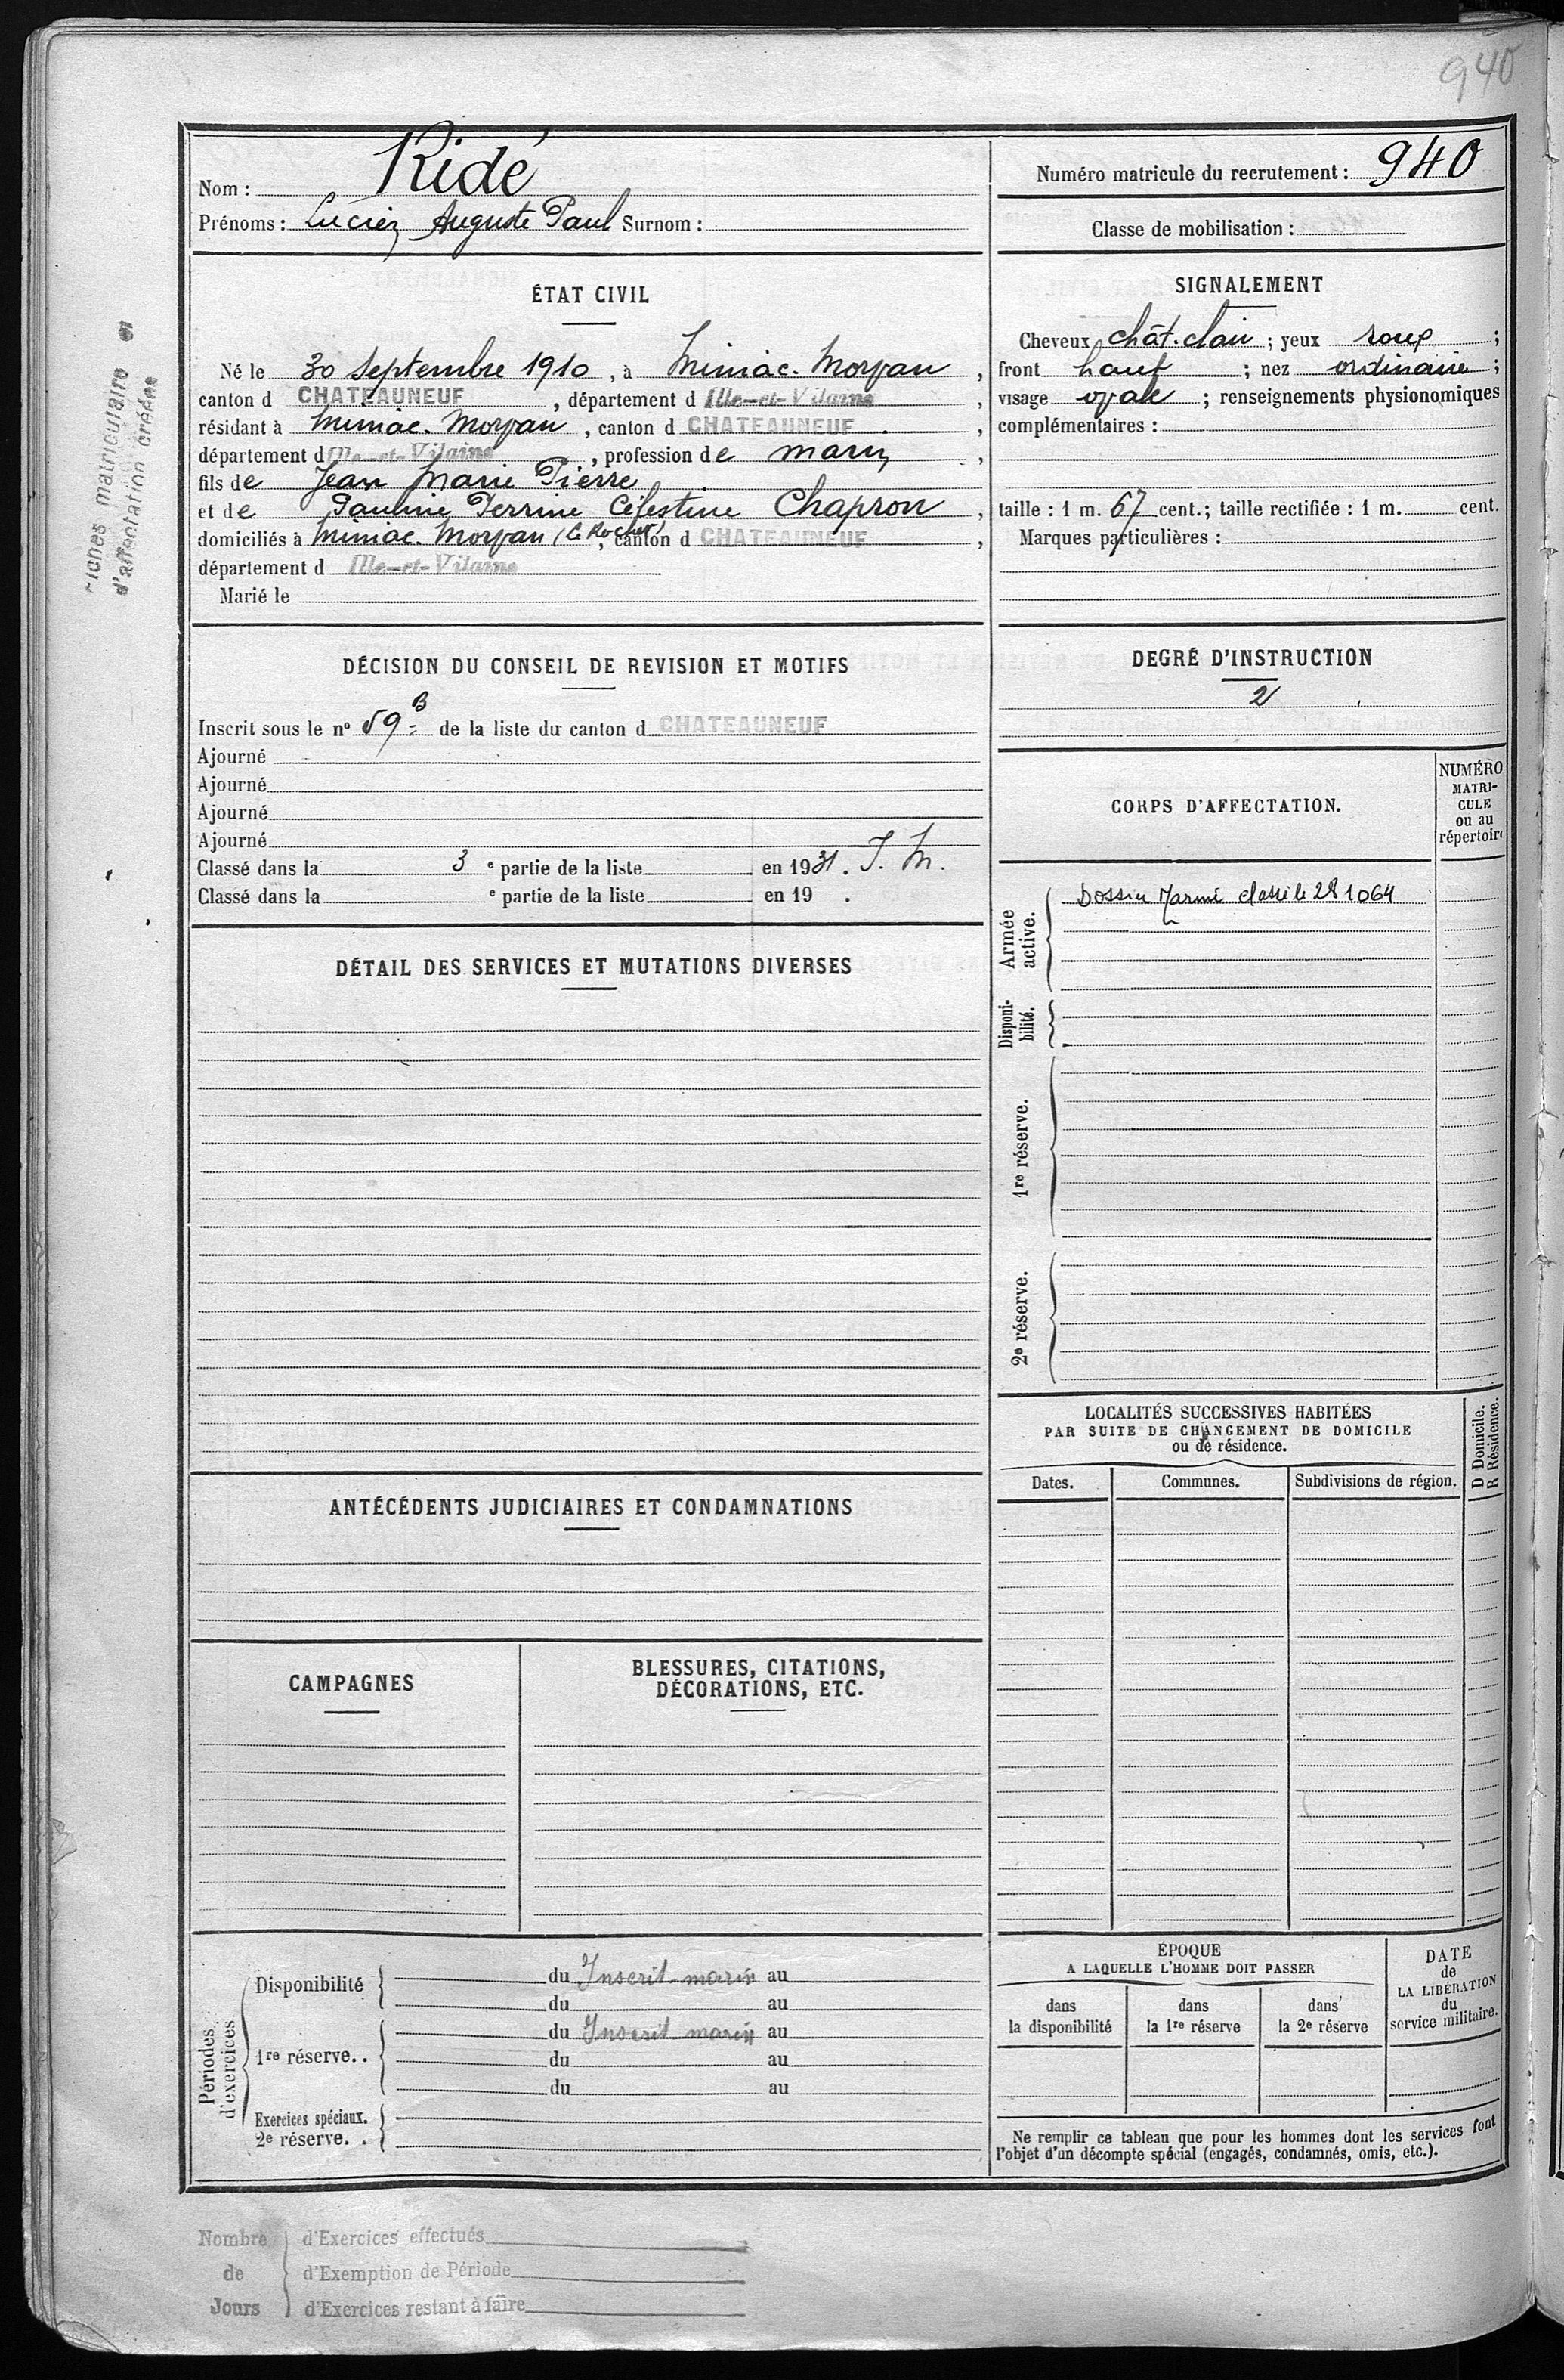 940
Fiches matriculaire et
d'affectation créées
Nom : Ridé
Prénoms : Lucien Auguste Paul Surnom :
Numéro matricule du recrutement : 940
Classe de mobilisation :
ÉTAT CIVIL
Né le 30 Septembre 1910, à Miniac-Morvan,
canton d CHATEAUNEUF, département d Ille-et-Vilaine,
résidant à Miniac-Morvan, canton d CHATEAUNEUF,
département d Ille-et-Vilaine, profession de marin,
fils de Jean Marie Pierre
et de Pauline Perrine Célestine Chapron,
domiciliés à Miniac-Morvan (Le Rocher), canton d CHATEAUNEUF,
département d Ille-et-Vilaine
Marié le
SIGNALEMENT
Cheveux chât. clair ; yeux roux ;
front haut ; nez ordinaire ;
visage ovale ; renseignements physionomiques
complémentaires :
taille : 1 m. 67 cent.; taille rectifiée : 1 m. cent.
Marques particulières :
DÉCISION DU CONSEIL DE REVISION ET MOTIFS
Inscrit sous le n° 59 B de la liste du canton d CHATEAUNEUF
Ajourné
Ajourné
Ajourné
Ajourné
Classé dans la 3 e partie de la liste en 1931. I. M.
Classé dans la e partie de la liste en 19 .
DEGRÉ D'INSTRUCTION
2
CORPS D'AFFECTATION.
NUMÉRO
MATRI-
CULE
ou au
répertoire
Armée
active.
Dossier Marine classé le 28 1064
Disponi-
bilité.
1re réserve.
2e réserve.
DÉTAIL DES SERVICES ET MUTATIONS DIVERSES
ANTÉCÉDENTS JUDICIAIRES ET CONDAMNATIONS
CAMPAGNES
BLESSURES, CITATIONS,
DÉCORATIONS, ETC.
LOCALITÉS SUCCESSIVES HABITÉES
PAR SUITE DE CHANGEMENT DE DOMICILE
ou de résidence.
D Domicile.
R Résidence.
Dates. Communes. Subdivisions de région.
Périodes
d'exercices
Disponibilité du Inscrit marin au
du au
1re réserve.. du Inscrit marin au
du au
du au
Exercices spéciaux.
2e réserve. .
ÉPOQUE
A LAQUELLE L'HOMME DOIT PASSER
dans
la disponibilité
dans
la 1re réserve
dans
la 2e réserve
DATE
de
LA LIBÉRATION
du
service militaire.
Ne remplir ce tableau que pour les hommes dont les services font
l'objet d'un décompte spécial (engagés, condamnés, omis, etc.).
Nombre d'Exercices effectués
de d'Exemption de Période
Jours d'Exercices restant à faire